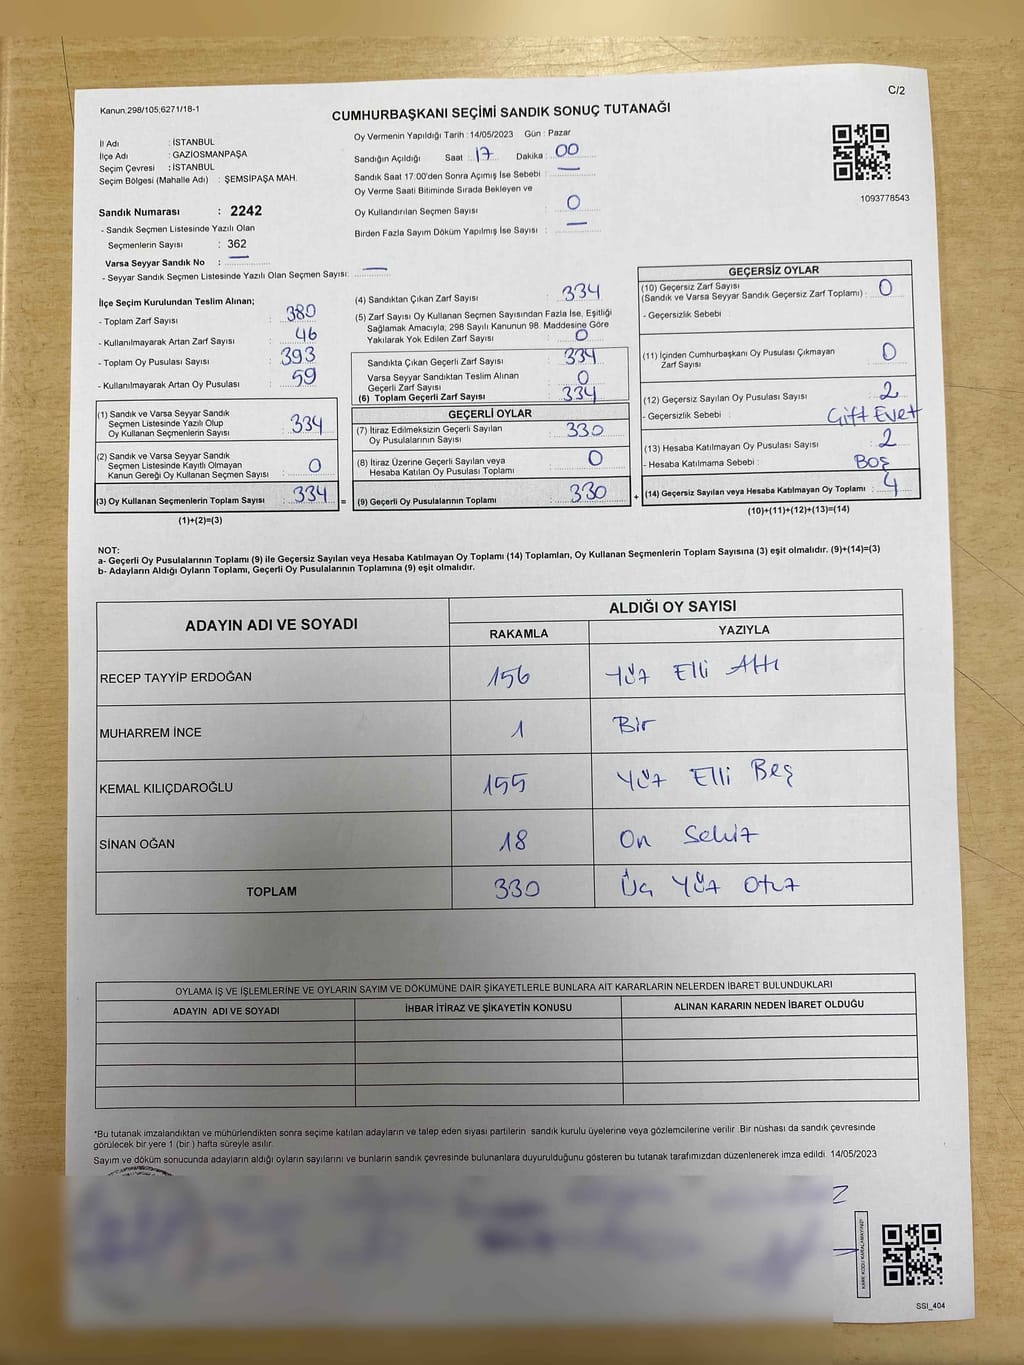 Kanun:298/105;6271/18-1
C/2
CUMHURBAŞKANI SEÇİMİ SANDIK SONUÇ TUTANAĞI
İl Adı : İSTANBUL
İlçe Adı : GAZİOSMANPAŞA
Seçim Çevresi : İSTANBUL
Seçim Bölgesi (Mahalle Adı) : ŞEMSİPAŞA MAH.
Sandık Numarası : 2242
- Sandık Seçmen Listesinde Yazılı Olan
Seçmenlerin Sayısı : 362
Varsa Seyyar Sandık No : —
- Seyyar Sandık Seçmen Listesinde Yazılı Olan Seçmen Sayısı: —
Oy Vermenin Yapıldığı Tarih : 14/05/2023 Gün : Pazar
Sandığın Açıldığı Saat : 17 Dakika : 00
Sandık Saat 17:00'den Sonra Açımış İse Sebebi : —
Oy Verme Saati Bitiminde Sırada Bekleyen ve
Oy Kullandırılan Seçmen Sayısı : 0
Birden Fazla Sayım Döküm Yapılmış İse Sayısı : —
1093778543
İlçe Seçim Kurulundan Teslim Alınan;
- Toplam Zarf Sayısı : 380
- Kullanılmayarak Artan Zarf Sayısı : 46
- Toplam Oy Pusulası Sayısı : 393
- Kullanılmayarak Artan Oy Pusulası : 59
(1) Sandık ve Varsa Seyyar Sandık
Seçmen Listesinde Yazılı Olup
Oy Kullanan Seçmenlerin Sayısı : 334
(2) Sandık ve Varsa Seyyar Sandık
Seçmen Listesinde Kayıtlı Olmayan
Kanun Gereği Oy Kullanan Seçmen Sayısı : 0
(3) Oy Kullanan Seçmenlerin Toplam Sayısı : 334 =
(1)+(2)=(3)
(4) Sandıktan Çıkan Zarf Sayısı : 334
(5) Zarf Sayısı Oy Kullanan Seçmen Sayısından Fazla İse, Eşitliği
Sağlamak Amacıyla; 298 Sayılı Kanunun 98. Maddesine Göre
Yakılarak Yok Edilen Zarf Sayısı : 0
Sandıkta Çıkan Geçerli Zarf Sayısı : 334
Varsa Seyyar Sandıktan Teslim Alınan
Geçerli Zarf Sayısı : 0
(6) Toplam Geçerli Zarf Sayısı : 334
GEÇERLİ OYLAR
(7) İtiraz Edilmeksizin Geçerli Sayılan
Oy Pusulalarının Sayısı : 330
(8) İtiraz Üzerine Geçerli Sayılan veya
Hesaba Katılan Oy Pusulası Toplamı : 0
(9) Geçerli Oy Pusulalarının Toplamı : 330 +
GEÇERSİZ OYLAR
(10) Geçersiz Zarf Sayısı
(Sandık ve Varsa Seyyar Sandık Geçersiz Zarf Toplamı) : 0
- Geçersizlik Sebebi :
(11) İçinden Cumhurbaşkanı Oy Pusulası Çıkmayan
Zarf Sayısı : 0
(12) Geçersiz Sayılan Oy Pusulası Sayısı : 2
- Geçersizlik Sebebi : Çift Evet
(13) Hesaba Katılmayan Oy Pusulası Sayısı : 2
- Hesaba Katılmama Sebebi : Boş
(14) Geçersiz Sayılan veya Hesaba Katılmayan Oy Toplamı : 4
(10)+(11)+(12)+(13)=(14)
NOT:
a- Geçerli Oy Pusulalarının Toplamı (9) ile Geçersiz Sayılan veya Hesaba Katılmayan Oy Toplamı (14) Toplamları, Oy Kullanan Seçmenlerin Toplam Sayısına (3) eşit olmalıdır. (9)+(14)=(3)
b- Adayların Aldığı Oyların Toplamı, Geçerli Oy Pusulalarının Toplamına (9) eşit olmalıdır.
ADAYIN ADI VE SOYADI
ALDIĞI OY SAYISI
RAKAMLA YAZIYLA
RECEP TAYYİP ERDOĞAN 156 Yüz Elli Altı
MUHARREM İNCE 1 Bir
KEMAL KILIÇDAROĞLU 155 Yüz Elli Beş
SİNAN OĞAN 18 On Sekiz
TOPLAM 330 Üç Yüz Otuz
OYLAMA İŞ VE İŞLEMLERİNE VE OYLARIN SAYIM VE DÖKÜMÜNE DAİR ŞİKAYETLERLE BUNLARA AİT KARARLARIN NELERDEN İBARET BULUNDUKLARI
ADAYIN ADI VE SOYADI İHBAR İTİRAZ VE ŞİKAYETİN KONUSU ALINAN KARARIN NEDEN İBARET OLDUĞU
*Bu tutanak imzalandıktan ve mühürlendikten sonra seçime katılan adayların ve talep eden siyasi partilerin sandık kurulu üyelerine veya gözlemcilerine verilir. Bir nüshası da sandık çevresinde
görülecek bir yere 1 (bir) hafta süreyle asılır.
Sayım ve döküm sonucunda adayların aldığı oyların sayılarını ve bunların sandık çevresinde bulunanlara duyurulduğunu gösteren bu tutanak tarafımızdan düzenlenerek imza edildi. 14/05/2023
KARE KODU KARALAMAYINIZ!
SSI_404